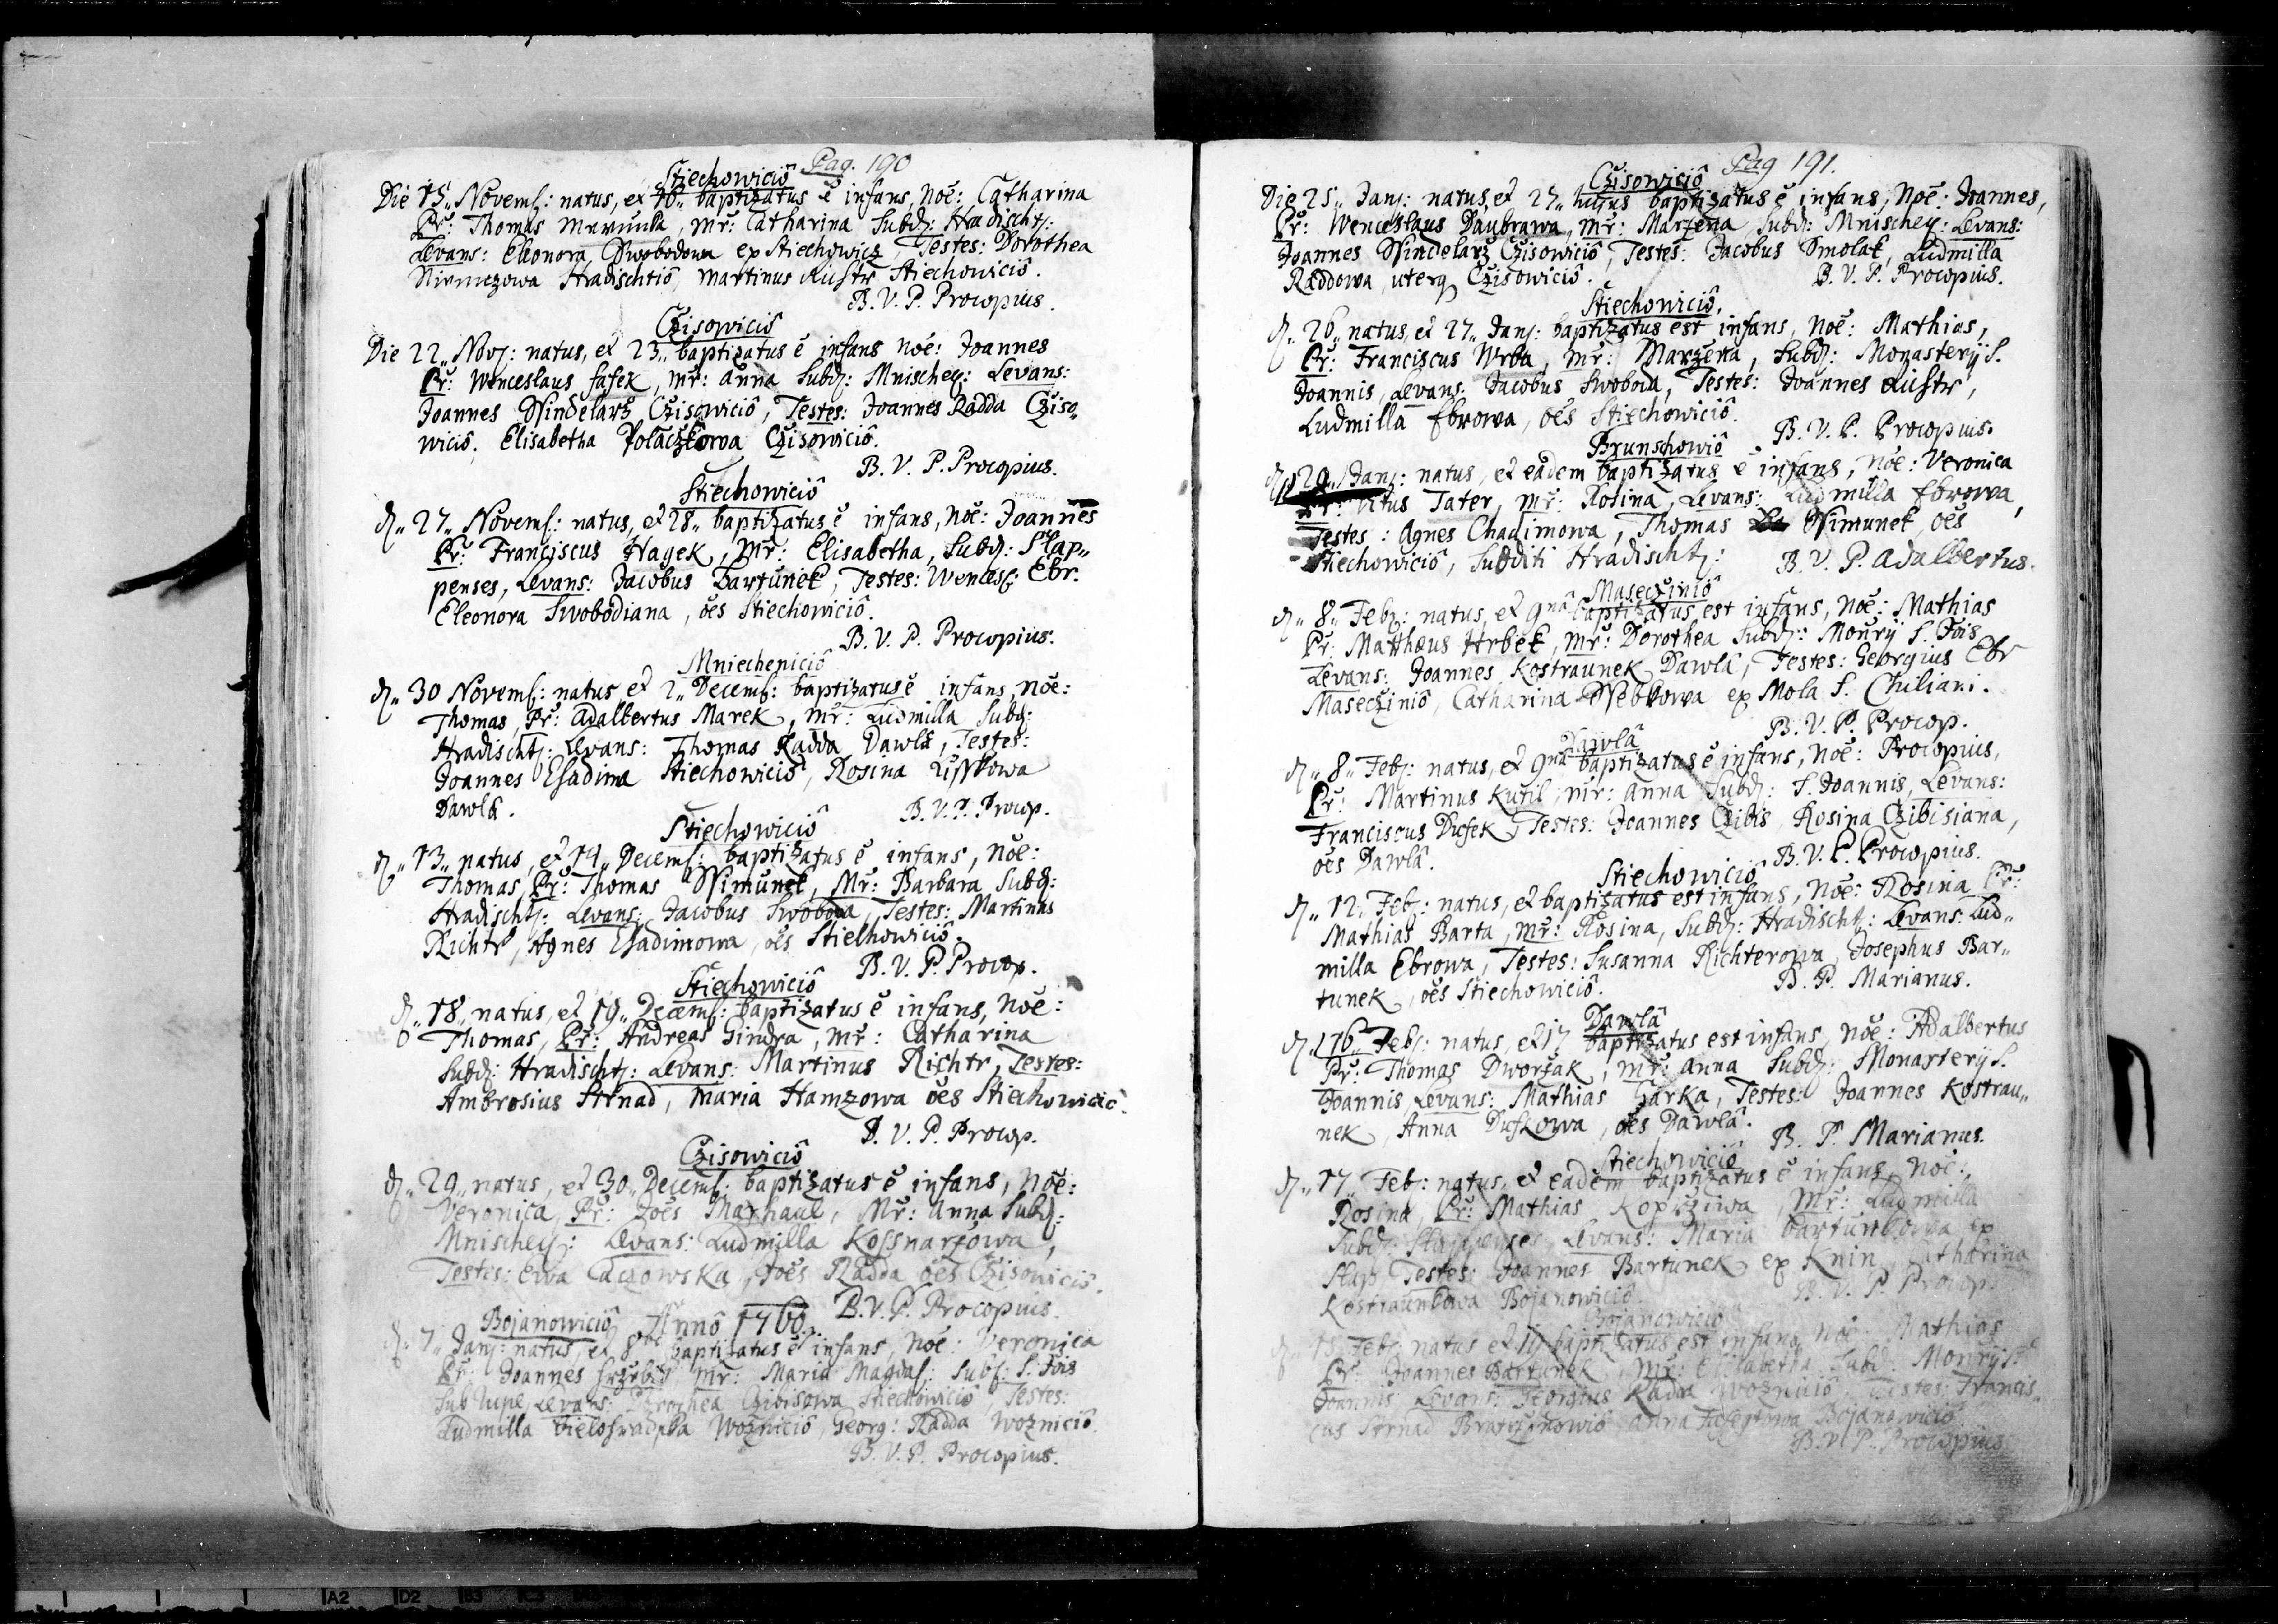 Pag. 190
Stiechowiciô
Die 15„ Novemb: natus, et 16„ baptizatus ê infans, Noê: Catharina
Pr̃: Thomas, Mr̃: Catharina Subd: Hradischt:
Levans: Eleonora Swobodowa ex Stiechowicz, Testes: Dorothea
Hradischtiô, Martinus Stiechowiciô.
B. V. P. Procopius.
Czisowiciô
Die 22„ Nov: natus, et 23„ baptizatus ê infans Noê: Joannes
Pr̃: Wenceslaus Safek, Mr̃: Anna Subd: Mnischey: Levans:
Joannes Ssindelarz Czisowiciô, Testes: Joannes Radda Cziso„
wiciô. Elisabetha Polaczkowa Czisowiciô.
B. V. P. Procopius.
Stiechowiciô
d„ 27„ Novemb: natus, et 28„ baptizatus ê infans, Noê: Joannes
Pr̃: Franciscus Hayek, Mr̃: Elisabetha, Subd: Slap„
penses, Levans: Jacobus Bartunek, Testes: Wencesl: Ebr.
Eleonora Swobodiana, oês Stiechowiciô.
B. V. P. Procopius.
Mniecheniciô
d„ 30 Novemb: natus et 2„ Decemb: baptizatus ê infans, Noê:
Thomas, Pr̃: Adalbertus Marek, Mr̃: Ludmilla Subd:
Hradischt: Levans: Thomas Radda Dawlâ, Testes:
Joannes Chadima Stiechowiciô, Rosina
Dawlâ.
B. V. P. Procop.
Stiechowiciô
d„ 13„ natus, et 14„ Decemb: baptizatus ê infans, Noê:
Thomas, Pr̃: Thomas Ssimunek, Mr̃: Barbara Subd:
Hradischt: Levans: Jacobus Swoboda, Testes: Martinus
Richtr, Agnes Chadimowa, oês Stiechowiciô.
B. V. P. Procop.
Stiechowiciô
d„ 18„ natus, et 19„ Decemb: baptizatus ê infans, Noê:
Thomas, Pr̃: Andreas Gindra, Mr̃: Catharina
Subd: Hradischt: Levans: Martinus Richtr, Testes:
Ambrosius Strnad, Maria Hamzowa oês Stiechowiciô.
B. V. P. Procop.
Czisowiciô
d„ 29„ natus, et 30„ Decemb: baptizatus ê infans, Noê:
Veronica, Pr̃: Joês Marhaul, Mr̃: Anna Subd:
Mnischey: Levans: Ludmilla Kossnarzowa,
Testes: Ewa Caczowska, Joês Radda oês Czisowiciô.
B. V. P. Procopius.
Bojanowiciô Annô 1760.
d„ 7„ Jan: natus, et 8va baptizatus ê infans, Noê: Veronica
Pr̃: Joannes, Mr̃: Maria Magdal: Subd: S. Jois
Sub rupe, Levans: Dorothea Czibisowa Stiechowiciô, Testes:
Ludmilla Wozniciô, Georg: Radda Wozniciô.
B. V. P. Procopius.
Pag 191.
Czisowiciô
Die 25„ Jan: natus, et 27„ hujus baptizatus ê infans, Noê: Joannes,
Pr̃: Wenceslaus Daubrawa, Mr̃: Marzena Subd: Mnischey: Levans:
Joannes Ssindelarz Czisowiciô, Testes: Jacobus Smolak, Ludmilla
Raddowa uterq Czisowiciô.
B. V. P. Procopius.
Stiechowiciô.
d„ 26„ natus, et 27„ Jan: baptizatus est infans, Noê: Mathias,
Pr̃: Franciscus Wrba, Mr̃: Marzena, Subd: Monasterij S.
Joannis, Levans: Jacobus Swoboda, Testes: Joannes,
Ludmilla Ebrowa, oês Stiechowiciô.
B. V. P. Procopius.
Brunschowiô
d„ 29„ Jan: natus, et eadem baptizatus ê infans, Noê: Veronica
Pr̃: Vitus Tater, Mr̃: Rosina, Levans: Ludmilla Ebrowa,
Testes: Agnes Chadimowa, Thomas Ssimunek, oês
Stiechowiciô, Subditi Hradischt:
B. V. P. Adalbertus.
Maseczîniô
d„ 8„ Feb: natus, et 9nâ baptizatus est infans, Noê: Mathias
Pr̃: Matthæus Hrbek, Mr̃: Dorothea Subd: Monrij S. Jois
Levans: Joannes Kostraunek Dawlâ, Testes: Georgius Ebr
Masecziniô, Catharina ex Mola S. Chiliani.
B. V. P. Procop.
Dawlâ
d„ 8„ Feb: natus, et 9nâ baptizatus ê infans, Noê: Procopius,
Pr̃: Martinus Kutil, Mr̃: Anna Subd: S. Joannis, Levans:
Franciscus Dusek, Testes: Joannes Czibis, Rosina Czibisiana,
oês Dawlâ.
B. V. P. Procopius.
Stiechowiciô
d„ 12„ Feb: natus, et baptizatus est infans, Noê: Rosina Pr̃:
Mathias Barta, Mr̃: Rosina, Subd: Hradischt: Levans: Lud„
milla Ebrowa, Testes: Susanna Richterowa, Josephus Bar„
tunek, oês Stiechowiciô.
B. P. Marianus.
Dawlâ
d„ 16„ Feb: natus, et 17 baptizatus est infans, Noê: Adalbertus
Pr̃: Thomas Dworzak, Mr̃: Anna Subd: Monasterij S.
Joannis Levans: Mathias Garka, Testes: Joannes Kostrau„
nek, Anna Duskowa, oês Dawlâ.
B. P. Marianus.
Stiechowiciô
d„ 17„ Feb: natus, et eadem baptizatus ê infans, Noê:
Rosina, Pr̃: Mathias Koprziwa, Mr̃: Ludmilla
Subd: Slappenses, Levans: Maria Bartunkowa ex
Slap, Testes: Joannes Bartunek ex Knin, Catharina
Kostraunkowa Bojanowiciô.
B. V. P. Procop.
Bojanowiciô
Feb: natus et baptizatus est infans, Noê: Mathias
Pr̃: Joannes Bartunek, Mr̃: Elisabetha, Subd: Monrij S.
Joannis Levans: Georgius Radda Wozniciô, Testes: Francis„
cus Strnad, Anna Bojanowiciô
B. V. P. Procopius